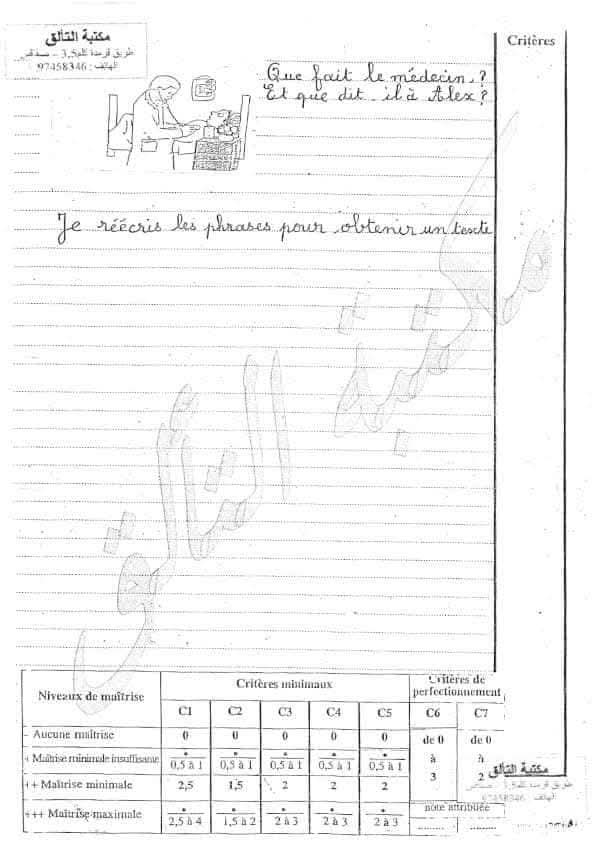 مكتبة التألق
طريق قرمدة كلم 3,5 - صفاقس
الهاتف : 97458346
Critères
Que fait le médecin ?
Et que dit-il à Alex ?
Je réécris les phrases pour obtenir un texte
مكتبة التألق
Niveaux de maîtrise
Critères minimaux
Critères de perfectionnement
C1 C2 C3 C4 C5 C6 C7
- Aucune maîtrise 0 0 0 0 0 de 0 de 0
+ Maîtrise minimale insuffisante 0,5 à 1 0,5 à 1 0,5 à 1 0,5 à 1 0,5 à 1 à à
++ Maîtrise minimale 2,5 1,5 2 2 2 3 2
+++ Maîtrise maximale 2,5 à 4 1,5 à 2 2 à 3 2 à 3 2 à 3
note attribuée
مكتبة التألق
طريق قرمدة كلم 3,5 - صفاقس
الهاتف : 97458346